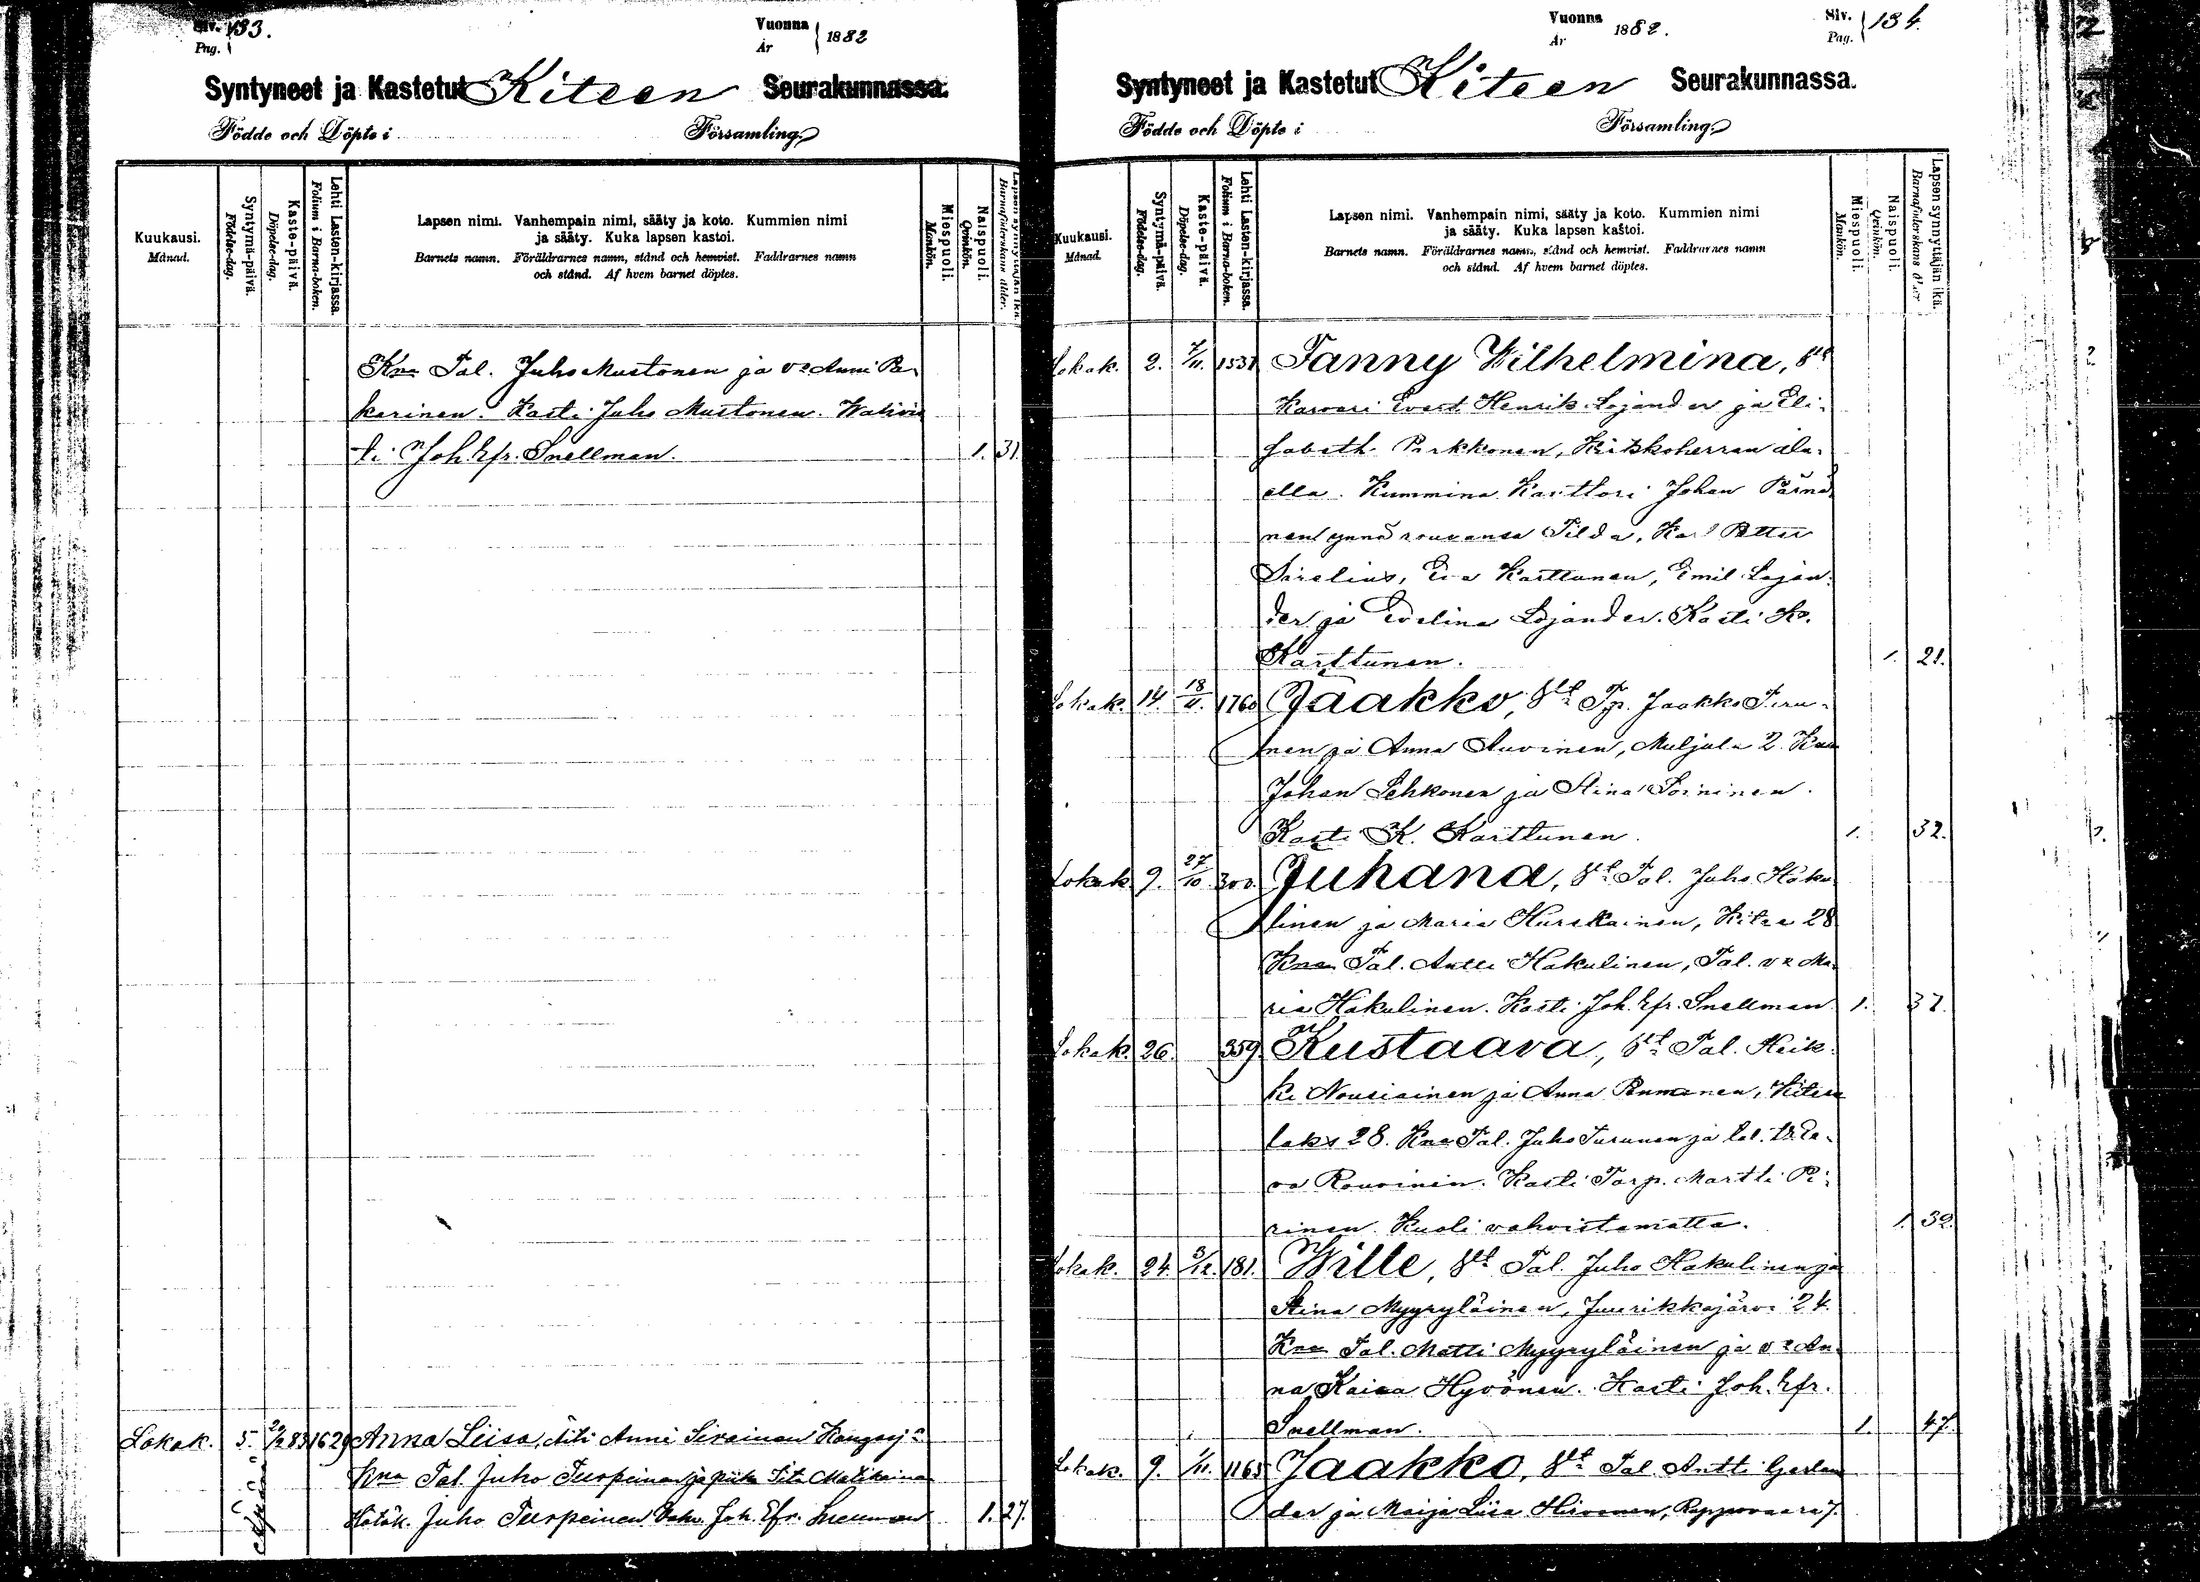 Siv. 133.
Pag.
Vuonna 1882
År
Syntyneet ja Kastetut Kiteen Seurakunnassa.
Födde och Döpte i Församling
Kuukausi.
Månad.
Syntymä-päivä.
Födelse-dag.
Kaste-päivä.
Döpelse-dag.
Lehti Lasten-kirjassa.
Folium i Barna-boken.
Lapsen nimi. Vanhempain nimi, sääty ja koto. Kummien nimi
ja sääty. Kuka lapsen kastoi.
Barnets namn. Föräldrarnes namn, stånd och hemvist. Faddrarnes namn
och stånd. Af hvem barnet döptes.
Miespuoli.
Mankön.
Naispuoli.
Qvinkön.
Lapsen synnyttäjän ikä.
Barnaföderskans ålder.
Kna Tal. Juho Mustonen ja vo Anni Pa-
karinen. Kasti Juho Mustonen. Wahvis
ti Joh. Efr. Snellman. 1. 31.
Lokak. 5. 1629 Anna Liisa, äiti Anni Sirainen
Kna Tal. Juho Turpeinen ja piika
Hätäk. Juho Turpeinen Vahv. Joh. Efr. Snellman 1. 27.
Vuonna 1882.
År
Siv. 134.
Pag.
Syntyneet ja Kastetut Kiteen Seurakunnassa.
Födde och Döpte i Församling
Kuukausi.
Månad.
Syntymä-päivä.
Födelse-dag.
Kaste-päivä.
Döpelse-dag.
Lehti Lasten-kirjassa.
Folium i Barna-boken.
Lapsen nimi. Vanhempain nimi, sääty ja koto. Kummien nimi
ja sääty. Kuka lapsen kastoi.
Barnets namn. Föräldrarnes namn, stånd och hemvist. Faddrarnes namn
och stånd. Af hvem barnet döptes.
Miespuoli.
Mankön.
Naispuoli.
Qvinkön.
Lapsen synnyttäjän ikä.
Barnaföderskans ålder
Lokak. 2. 7/11. 1531 Fanny Wilhelmina,
Karvari Evert Henrik Lojander ja Eli-
sabeth Parkkonen, Kirkkoherran ala-
alla. Kummina Kanttori Johan Pärnä-
nen ynnä rouvansa Tilda, Karl Petter
Sirelius, Eva Karttunen, Emil Lojan-
der ja Evelina Lojander. Kasti K.
Karttunen. 1. 21.
Lokak. 14. 18/11. 1760 Jaakko, Tp. Jaakko
nen ja Anna Auvinen, Muljula 2. Kna
Johan Lehkonen ja Stina Soininen.
Kasti K. Karttunen. 1. 32.
Lokak. 9. 27/10 300. Juhana, Tal. Juho Haku-
linen ja Maria Hurskainen, Kitee 28
Kna Tal. Antti Hakulinen, Tal. vo Ma-
ria Hakulinen. Kasti Joh. Efr. Snellman 1. 37.
Lokak. 26. 359. Kustaava, Tal. Heik-
ki Nousiainen ja Anna Ruma nen, Kiteen
laks 28. Kna Tal. Juho Turunen ja tal. vo Ee-
va Rouvinen. Kasti Torp. Martti Pi-
rinen. Kuoli vahvistamatta. 1. 32.
Lokak. 24. 3/12. 181. Wille, Tal. Juho Hakulinen ja
Stina Myyryläinen, Juurikkajärvi 24.
Kna Tal. Matti Myyryläinen ja vo An-
na Kaisa Hyvönen. Kasti Joh. Efr.
Snellman. 1. 47.
Lokak. 9. 1/11. 1165 Jaakko, Tal Antti Gerlan
der ja Maija Liisa Hirvonen, Roppovaara 7.